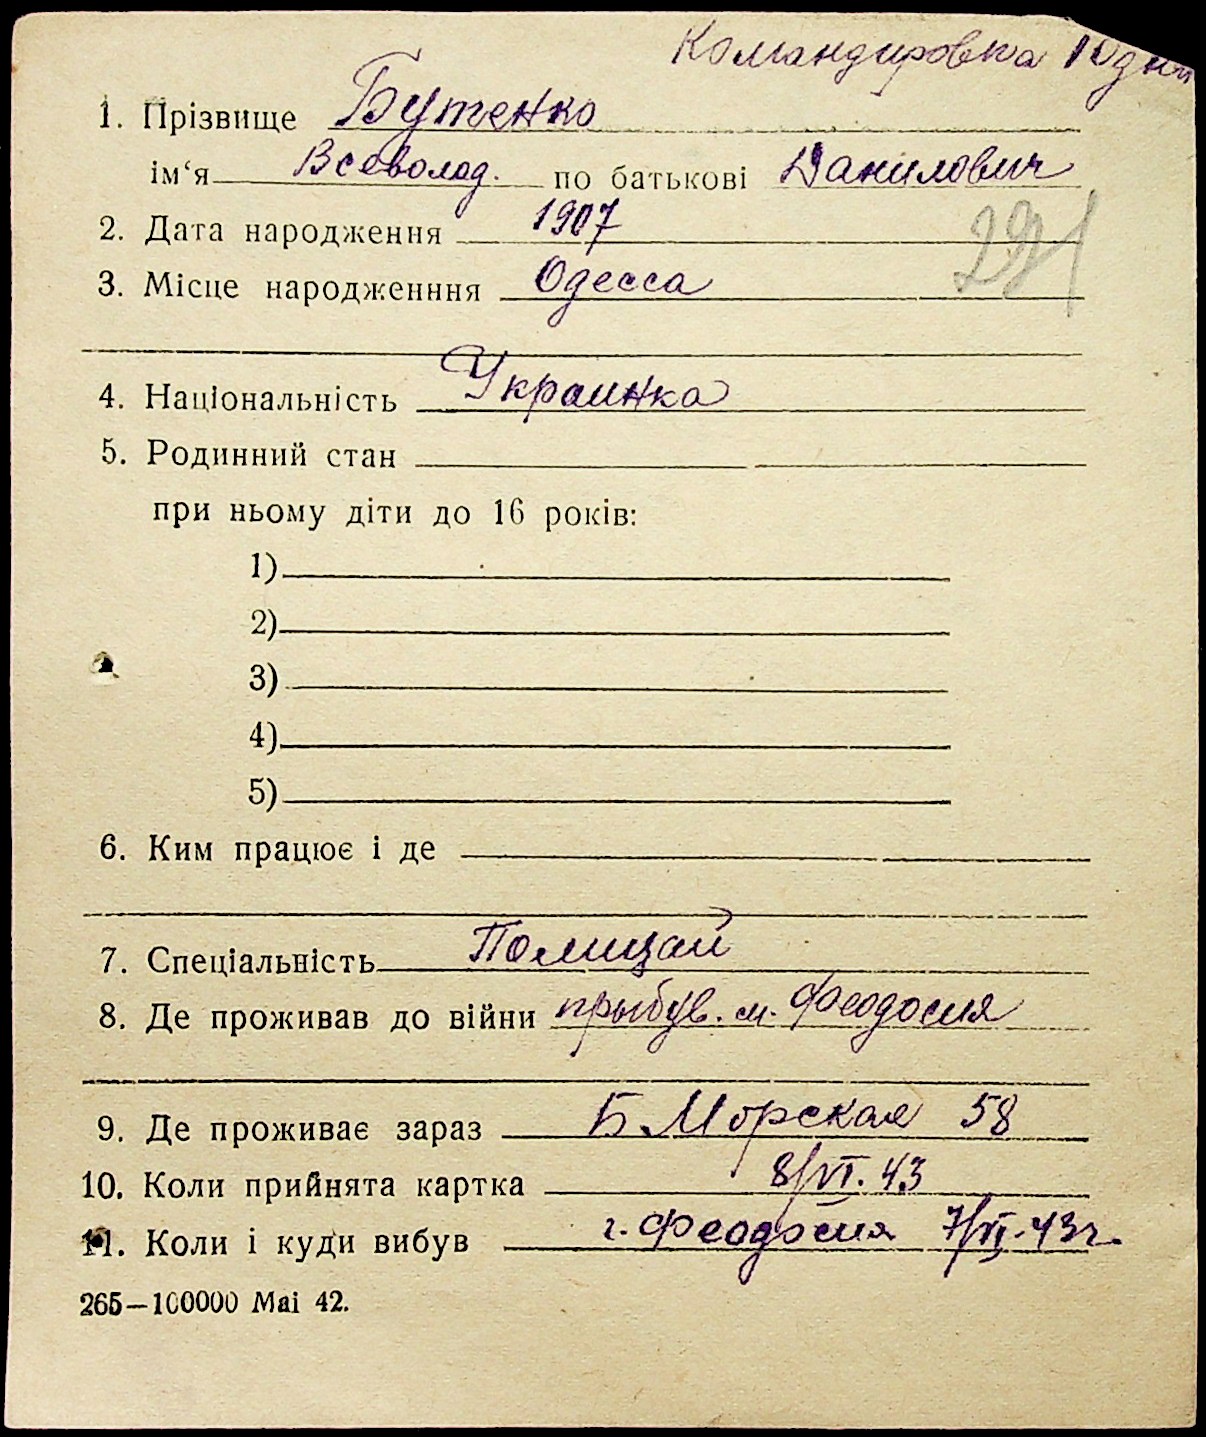 Командировка 10 дни
1. Прізвище Бутенко
ім‘я Всеволод. по батькові Данилович
2. Дата народження 1907
291
3. Місце народженння Одесса
4. Національність Украинка
5. Родинний стан
при ньому діти до 16 років:
1)
2)
3)
4)
5)
6. Ким працює і де
7. Спеціальність Полицай
8. Де проживав до війни прыбув. м. Феодосия
9. Де проживає зараз Б. Морская 58
10. Коли прийнята картка 8/VI. 43
11. Коли і куди вибув г. Феодосия 7/VI. 43 г.
265—100000 Mai 42.